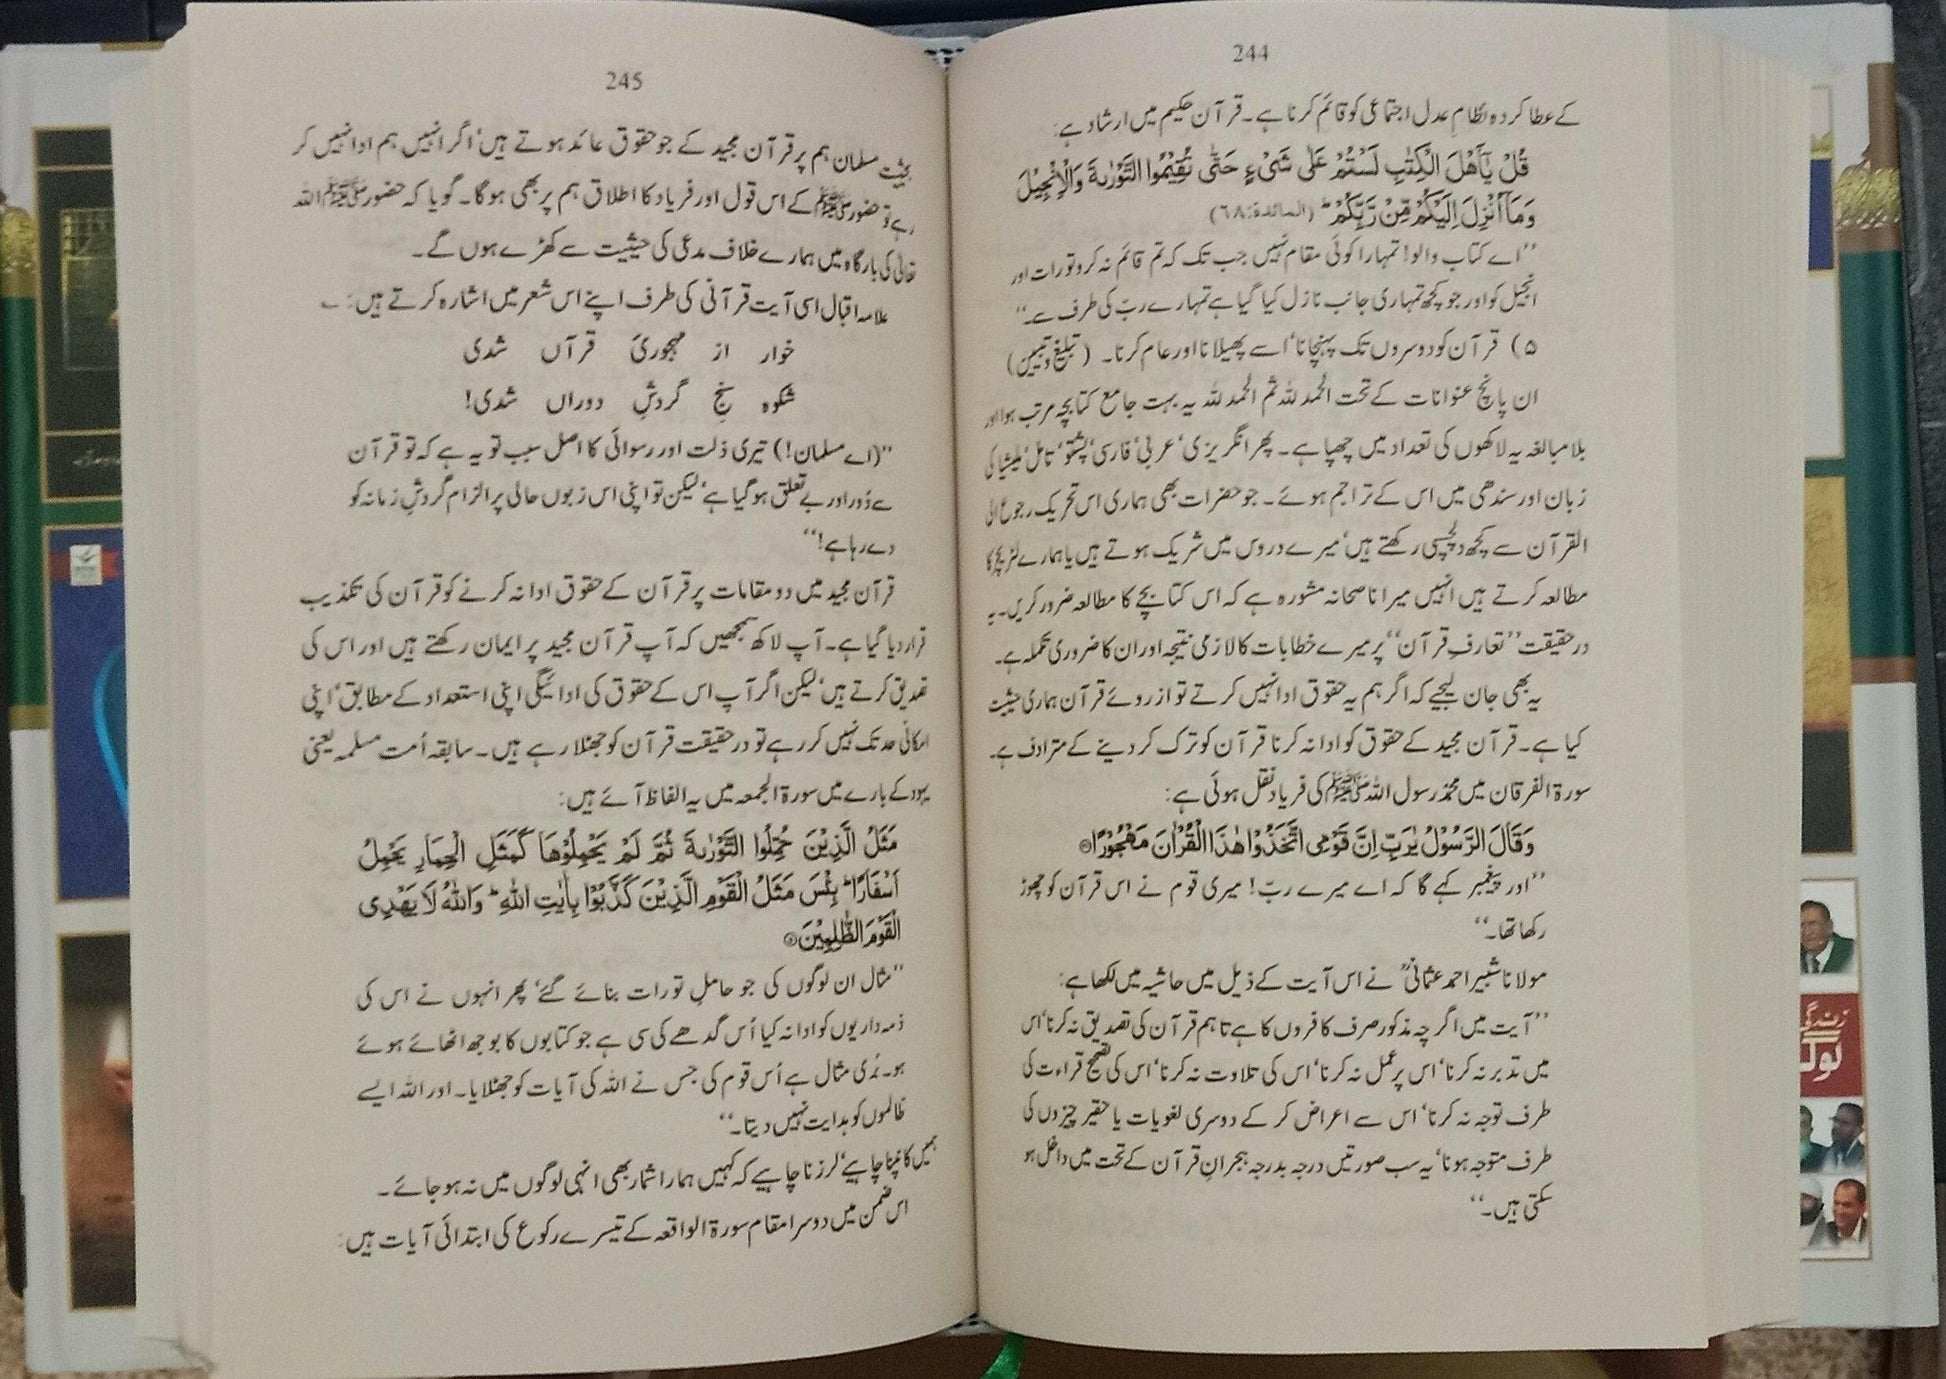 244
کے عطا کردہ نظامِ عدل اجتماعی کو قائم کرنا ہے۔ قرآن حکیم میں ارشاد ہے:
قُلْ يٰٓاَهْلَ الْكِتٰبِ لَسْتُمْ عَلٰى شَيْءٍ حَتّٰى تُقِيْمُوا التَّوْرٰىةَ وَالْاِنْجِيْلَ
وَمَآ اُنْزِلَ اِلَيْكُمْ مِّنْ رَّبِّكُمْ ؕ (المائدة:٦٨)
’’اے کتاب والو! تمہارا کوئی مقام نہیں جب تک کہ تم قائم نہ کرو تورات اور
انجیل کو اور جو کچھ تمہاری جانب نازل کیا گیا ہے تمہارے ربّ کی طرف سے۔‘‘
۵) قرآن کو دوسروں تک پہنچانا‘ اسے پھیلانا اور عام کرنا۔ (تبلیغ و تبیین)
ان پانچ عنوانات کے تحت الحمد للہ ثم الحمد للہ یہ بہت جامع کتابچہ مرتب ہوا اور
بلا مبالغہ یہ لاکھوں کی تعداد میں چھپا ہے۔ پھر انگریزی‘ عربی‘ فارسی‘ پشتو‘ تامل‘ ملیشیا کی
زبان اور سندھی میں اس کے تراجم ہوئے۔ جو حضرات بھی ہماری اس تحریک رجوع الی
القرآن سے کچھ دلچسپی رکھتے ہیں‘ میرے دروس میں شریک ہوتے ہیں یا ہمارے لٹریچر کا
مطالعہ کرتے ہیں انہیں میرا ناصحانہ مشورہ ہے کہ اس کتابچے کا مطالعہ ضرور کریں۔ یہ
درحقیقت ’’تعارفِ قرآن‘‘ پر میرے خطابات کا لازمی نتیجہ اور ان کا ضروری تکملہ ہے۔
یہ بھی جان لیجیے کہ اگر ہم یہ حقوق ادا نہیں کرتے تو ازروئے قرآن ہماری حیثیت
کیا ہے۔ قرآن مجید کے حقوق کو ادا نہ کرنا قرآن کو ترک کر دینے کے مترادف ہے۔
سورۃ الفرقان میں محمد رسول اللہ ﷺ کی فریاد نقل ہوئی ہے:
وَقَالَ الرَّسُوْلُ يٰرَبِّ اِنَّ قَوْمِى اتَّخَذُوْا هٰذَا الْقُرْاٰنَ مَهْجُوْرًا
’’اور پیغمبر کہے گا کہ اے میرے ربّ! میری قوم نے اس قرآن کو چھوڑ
رکھا تھا۔‘‘
مولانا شبیر احمد عثمانیؒ نے اس آیت کے ذیل میں حاشیہ میں لکھا ہے:
’’آیت میں اگرچہ مذکور صرف کافروں کا ہے تاہم قرآن کی تصدیق نہ کرنا‘ اس
میں تدبر نہ کرنا‘ اس پر عمل نہ کرنا‘ اس کی تلاوت نہ کرنا‘ اس کی تصحیح قراءت کی
طرف توجہ نہ کرنا‘ اس سے اعراض کر کے دوسری لغویات یا حقیر چیزوں کی
طرف متوجہ ہونا‘ یہ سب صورتیں درجہ بدرجہ ہجرانِ قرآن کے تحت میں داخل ہو
سکتی ہیں۔‘‘
245
بحیثیت مسلمان ہم پر قرآن مجید کے جو حقوق عائد ہوتے ہیں‘ اگر انہیں ہم ادا نہیں کر
رہے تو حضور ﷺ کے اس قول اور فریاد کا اطلاق ہم پر بھی ہوگا۔ گویا کہ حضور ﷺ اللہ
تعالیٰ کی بارگاہ میں ہمارے خلاف مدعی کی حیثیت سے کھڑے ہوں گے۔
علامہ اقبال اسی آیت قرآنی کی طرف اپنے اس شعر میں اشارہ کرتے ہیں: ؎
خوار از مہجوریٔ قرآں شدی
شکوہ سنج گردشِ دوراں شدی!
’’(اے مسلمان!) تیری ذلت اور رسوائی کا اصل سبب تو یہ ہے کہ تو قرآن
سے دُور اور بے تعلق ہو گیا ہے‘ لیکن تو اپنی اس زبوں حالی پر الزام گردشِ زمانہ کو
دے رہا ہے!‘‘
قرآن مجید میں دو مقامات پر قرآن کے حقوق ادا نہ کرنے کو قرآن کی تکذیب
قرار دیا گیا ہے۔ آپ لاکھ سمجھیں کہ آپ قرآن مجید پر ایمان رکھتے ہیں اور اس کی
تصدیق کرتے ہیں‘ لیکن اگر آپ اس کے حقوق کی ادائیگی اپنی استعداد کے مطابق‘ اپنی
امکانی حد تک نہیں کر رہے تو درحقیقت قرآن کو جھٹلا رہے ہیں۔ سابقہ اُمت مسلمہ یعنی
یہود کے بارے میں سورۃ الجمعہ میں یہ الفاظ آئے ہیں:
مَثَلُ الَّذِيْنَ حُمِّلُوا التَّوْرٰىةَ ثُمَّ لَمْ يَحْمِلُوْهَا كَمَثَلِ الْحِمَارِ يَحْمِلُ
اَسْفَارًا ؕ بِئْسَ مَثَلُ الْقَوْمِ الَّذِيْنَ كَذَّبُوْا بِاٰيٰتِ اللّٰهِ ؕ وَاللّٰهُ لَا يَهْدِى
الْقَوْمَ الظّٰلِمِيْنَ
’’مثال ان لوگوں کی جو حاملِ تورات بنائے گئے‘ پھر انہوں نے اس کی
ذمہ داریوں کو ادا نہ کیا اُس گدھے کی سی ہے جو کتابوں کا بوجھ اٹھائے ہوئے
ہو۔ بُری مثال ہے اُس قوم کی جس نے اللہ کی آیات کو جھٹلایا۔ اور اللہ ایسے
ظالموں کو ہدایت نہیں دیتا۔‘‘
ہمیں کانپنا چاہیے‘ لرزنا چاہیے کہ کہیں ہمارا شمار بھی انہی لوگوں میں نہ ہو جائے۔
اس ضمن میں دوسرا مقام سورۃ الواقعہ کے تیسرے رکوع کی ابتدائی آیات ہیں: